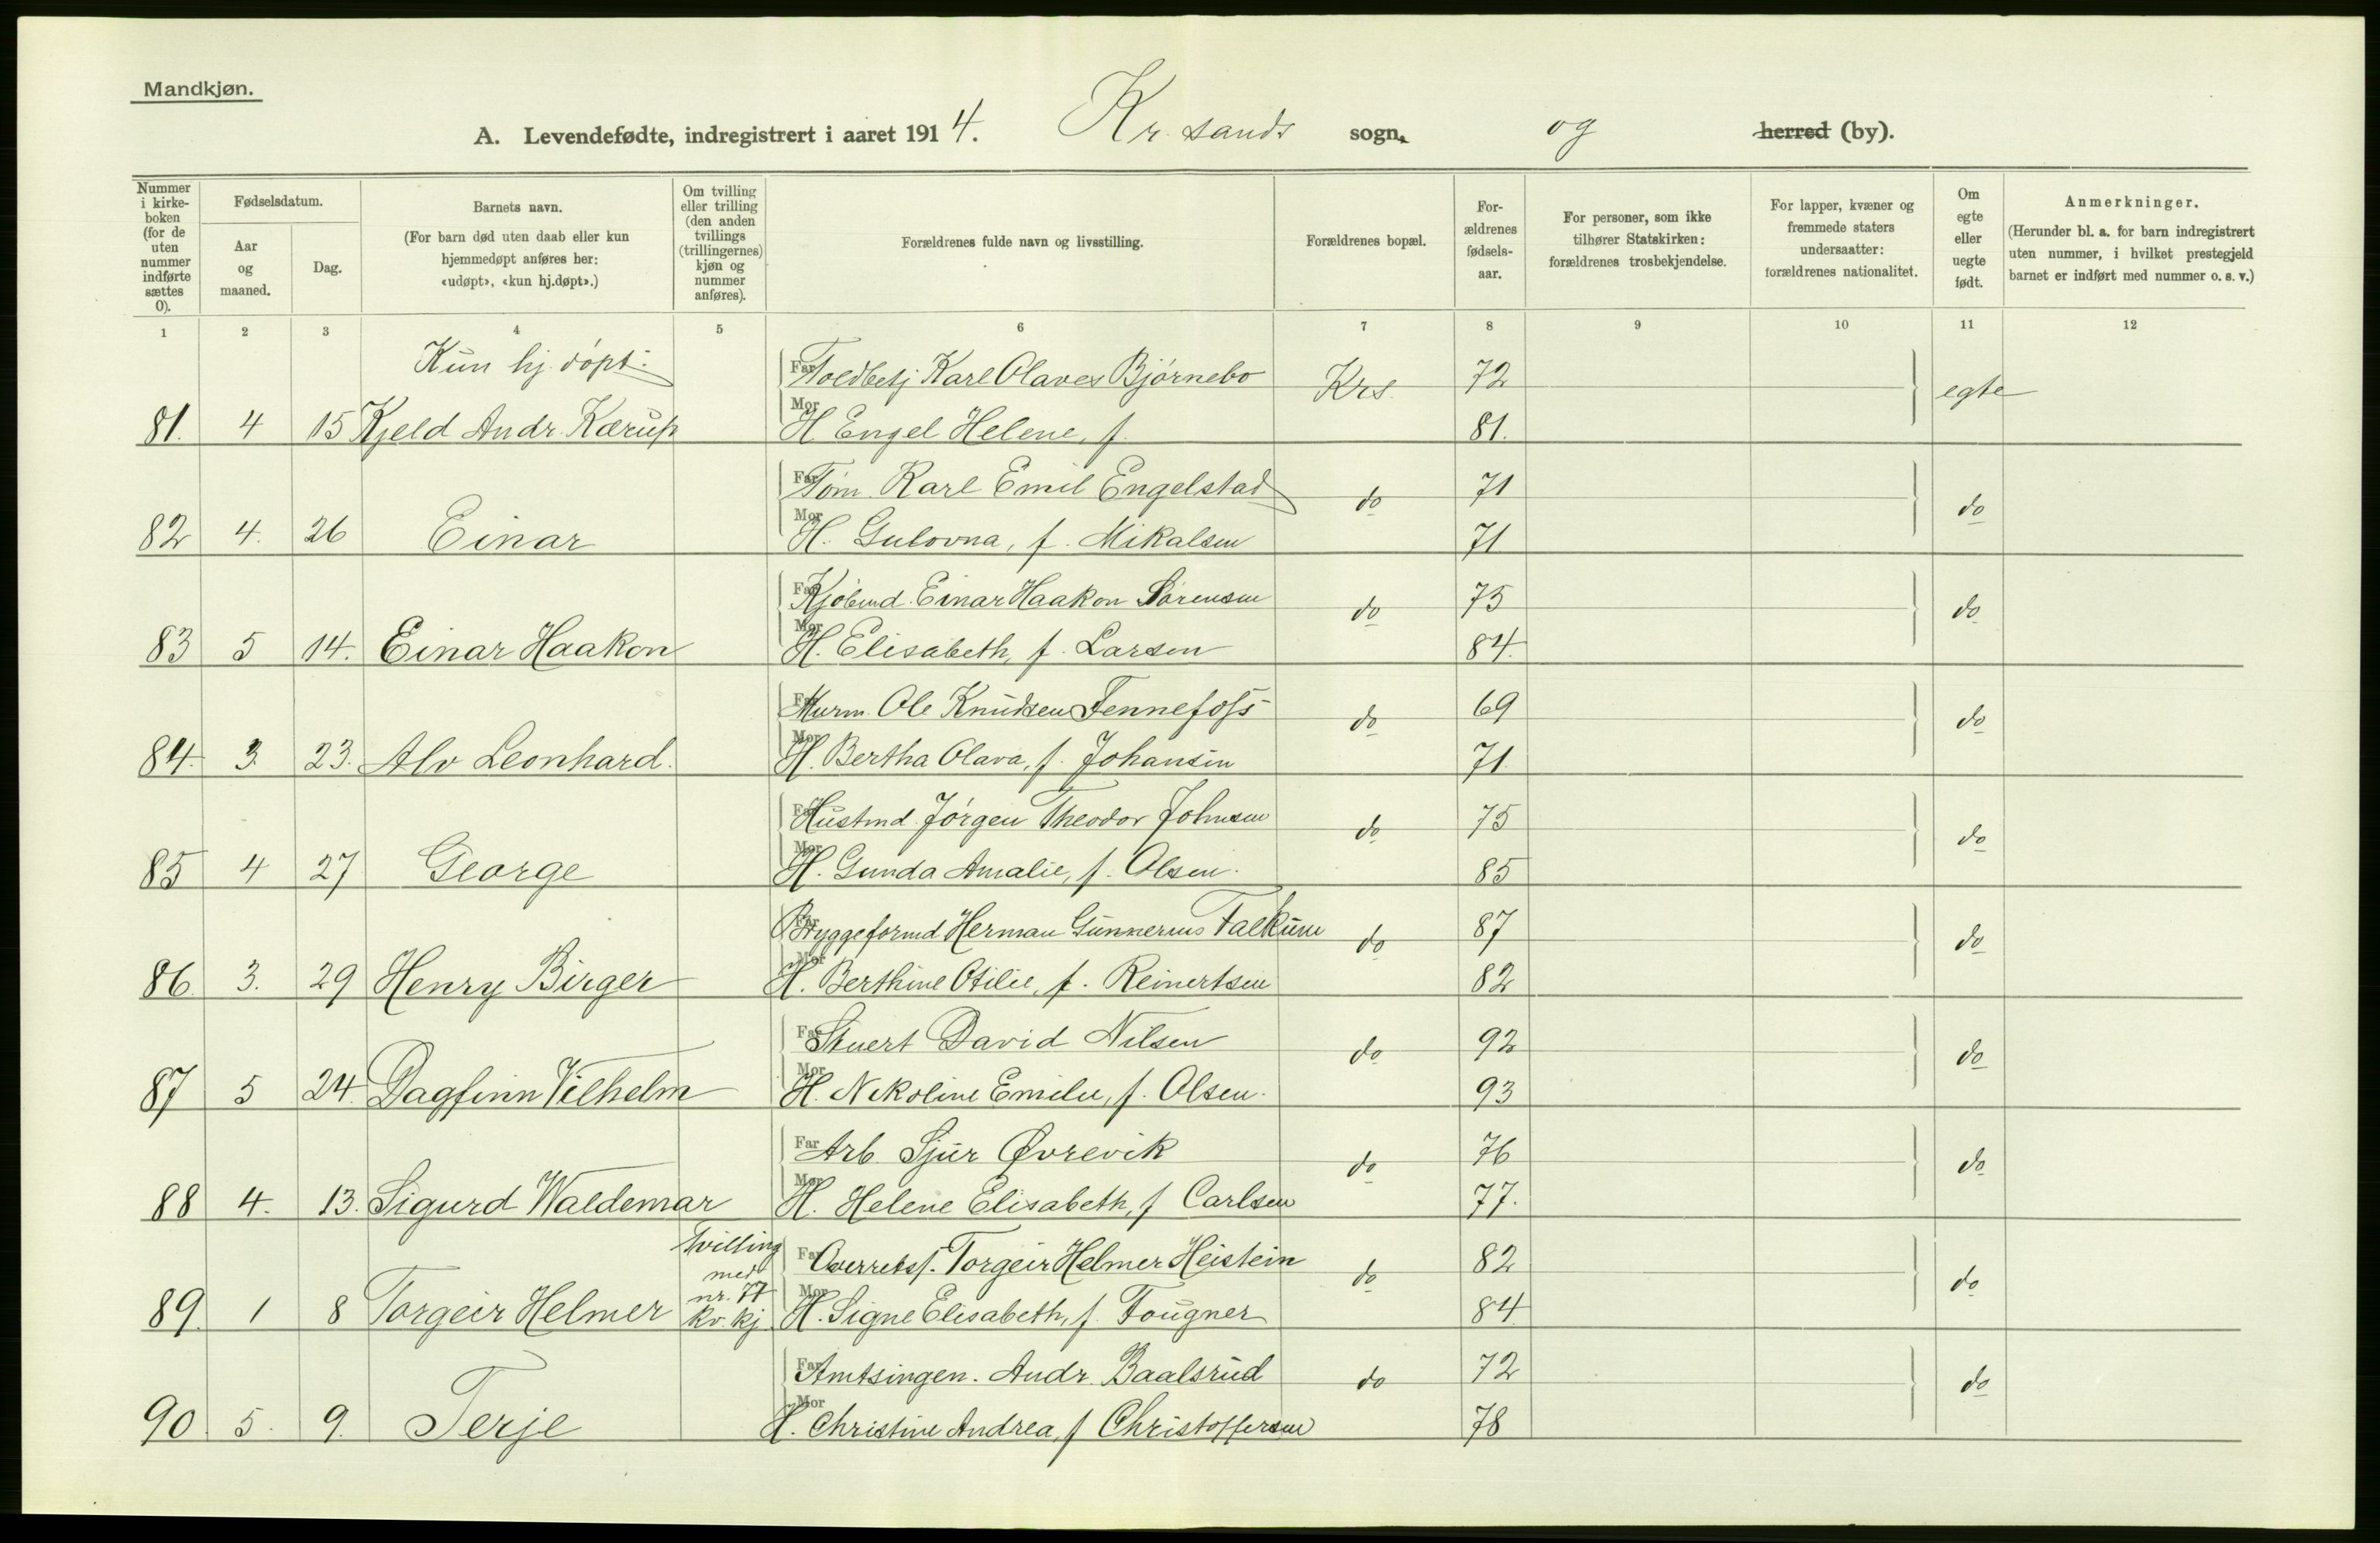 Mandkjøn.
A. Levendefødte, indregistrert i aaret 1914. Kr.sands sogn, og herred (by).
Nummer i kirke-boken (for de uten nummer indførte sættes 0).
Fødselsdatum.
Aar og maaned.
Dag.
Barnets navn.
(For barn død uten daab eller kun hjemmedøpt anføres her: «udøpt», «kun hj.døpt».)
Om tvilling eller trilling (den anden tvillings (trillingernes) kjøn og nummer anføres).
Forældrenes fulde navn og livsstilling.
Forældrenes bopæl.
For-ældrenes fødsels-aar.
For personer, som ikke tilhører Statskirken: forældrenes trosbekjendelse.
For lapper, kvæner og fremmede staters undersaatter: forældrenes nationalitet.
Om egte eller uegte født.
Anmerkninger.
(Herunder bl. a. for barn indregistrert uten nummer, i hvilket prestegjeld barnet er indført med nummer o. s. v.)
1 2 3 4 5 6 7 8 9 10 11 12
Kun hj. døpt:
Far Toldbetj Karl Olaves Bjørnebo Krs. 72 egte
81. 4 15 Kjeld Andr. Kærup Mor H Engel Helene, f. 81.
Far Tøm. Karl Emil Engelstad do 71 do
82 4. 26 Einar Mor H. Gulovna, f. Mikalsen 71
Far Kjøbmd. Einar Haakon Sørensen do 75 do
83 5 14. Einar Haakon Mor H. Elisabeth, f. Larsen 84.
Far Murm. Ole Knudsen Fennefoss do 69 do
84. 3. 23. Alv Leonhard. Mor H. Bertha Olava, f. Johansen 71.
Far Hustmd. Jørgen Theodor Johnsen do 75 do
85 4 27 George Mor H. Gunda Amalie, f. Olsen. 85
Far Bryggeformd Herman Gunnerius Falkum do 87 do
86. 3. 29 Henry Birger Mor H. Berthine Otilie, f. Reinertsen 82
Far Stuert David Nilsen do 92 do
87 5 24. Dagfinn Vilhelm Mor H. Nikoline Emilie, f. Olsen. 93
Far Arb. Sjur Øvrevik do 76 do
88 4. 13. Sigurd Waldemar Mor H. Helene Elisabeth, f Carlsen 77.
Tvilling med nr. 77 kv. kj.
Far Overretssf. Torgeir Helmer Heistein do 82 do
89. 1 8 Torgeir Helmer Mor H. Signe Elisabeth, f. Fougner 84.
Far Amtsingen. Andr. Baalsrud do 72 do
90. 5. 9. Terje Mor H. Christine Andrea, f Christoffersen 78